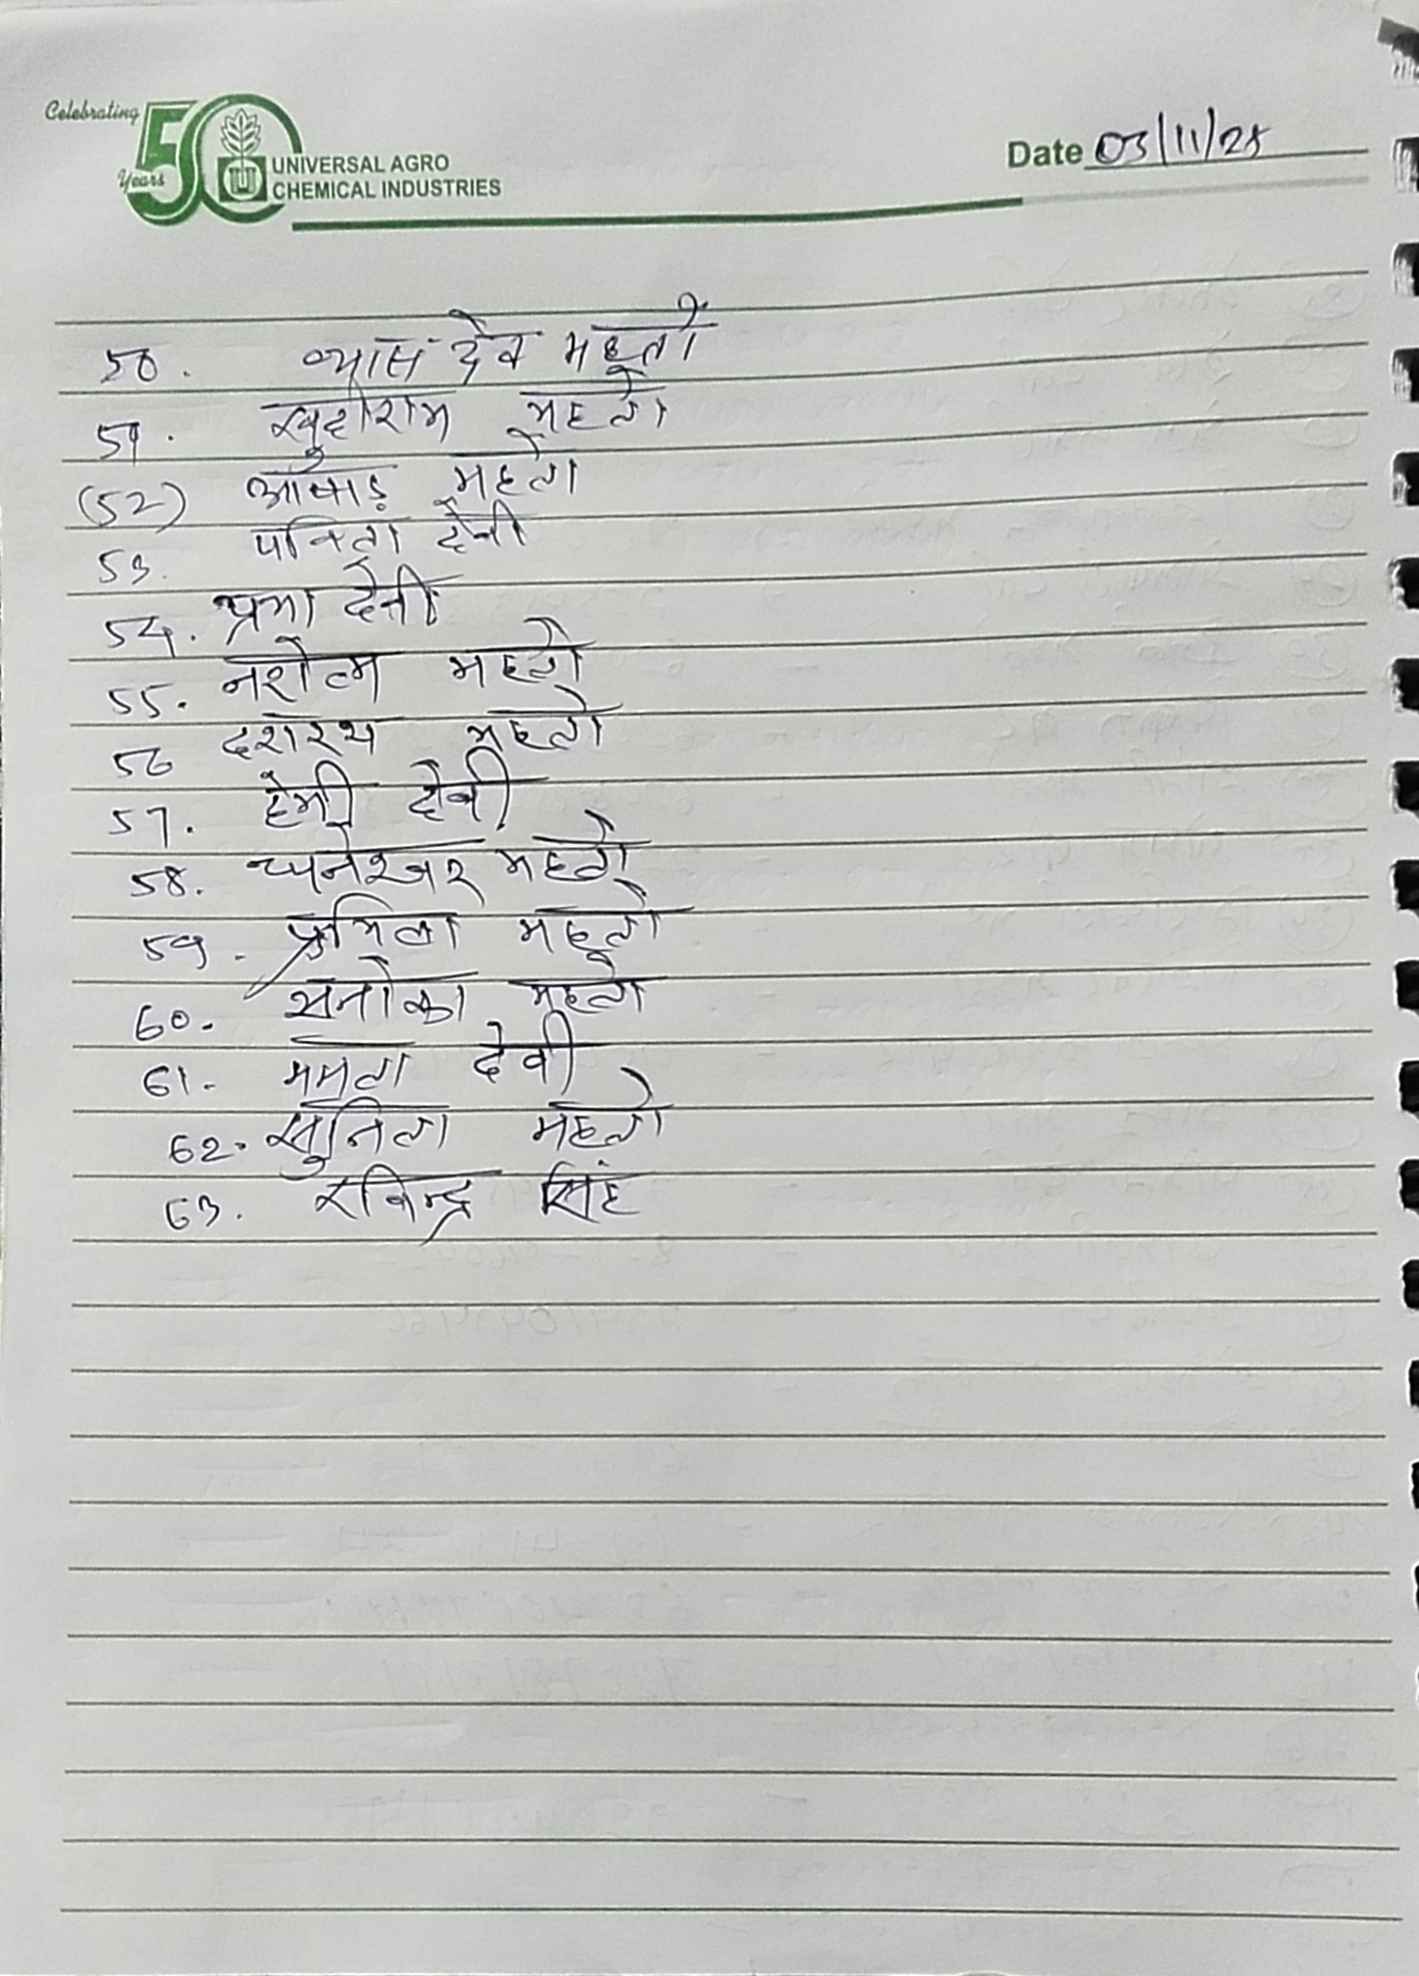 Celebrating
50
Years
UNIVERSAL AGRO
CHEMICAL INDUSTRIES
Date 03/11/25
50. व्यास देव महतो
51. खुदीराम महतो
(52) आषाड़ महतो
53. पविता देवी
54. प्रभा देवी
55. नरोत्म महतो
56 दशरथ महतो
57. हेमी देवी
58. धनेश्वर महतो
59. प्रमिला महतो
60. महतो
61. ममता देवी
62. सुनिता महतो
63. रविन्द्र सिंह